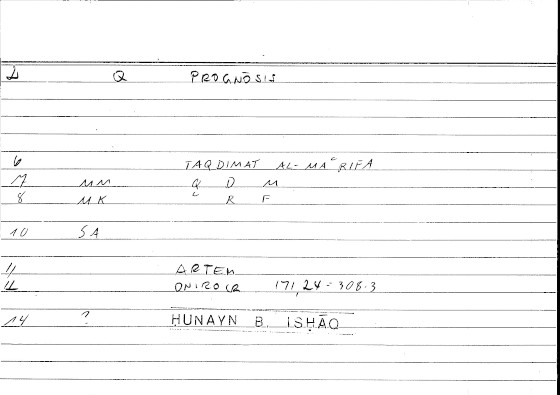 1 Q PROGNŌSIS
6 TAQDIMAT AL-MAʿRIFA
7 MM Q D M
8 MK ʿ R F
10 SA
11 ARTEM
12 ONIROCR 171,24 = 308.3
14 ? HUNAYN B. ISḤĀQ